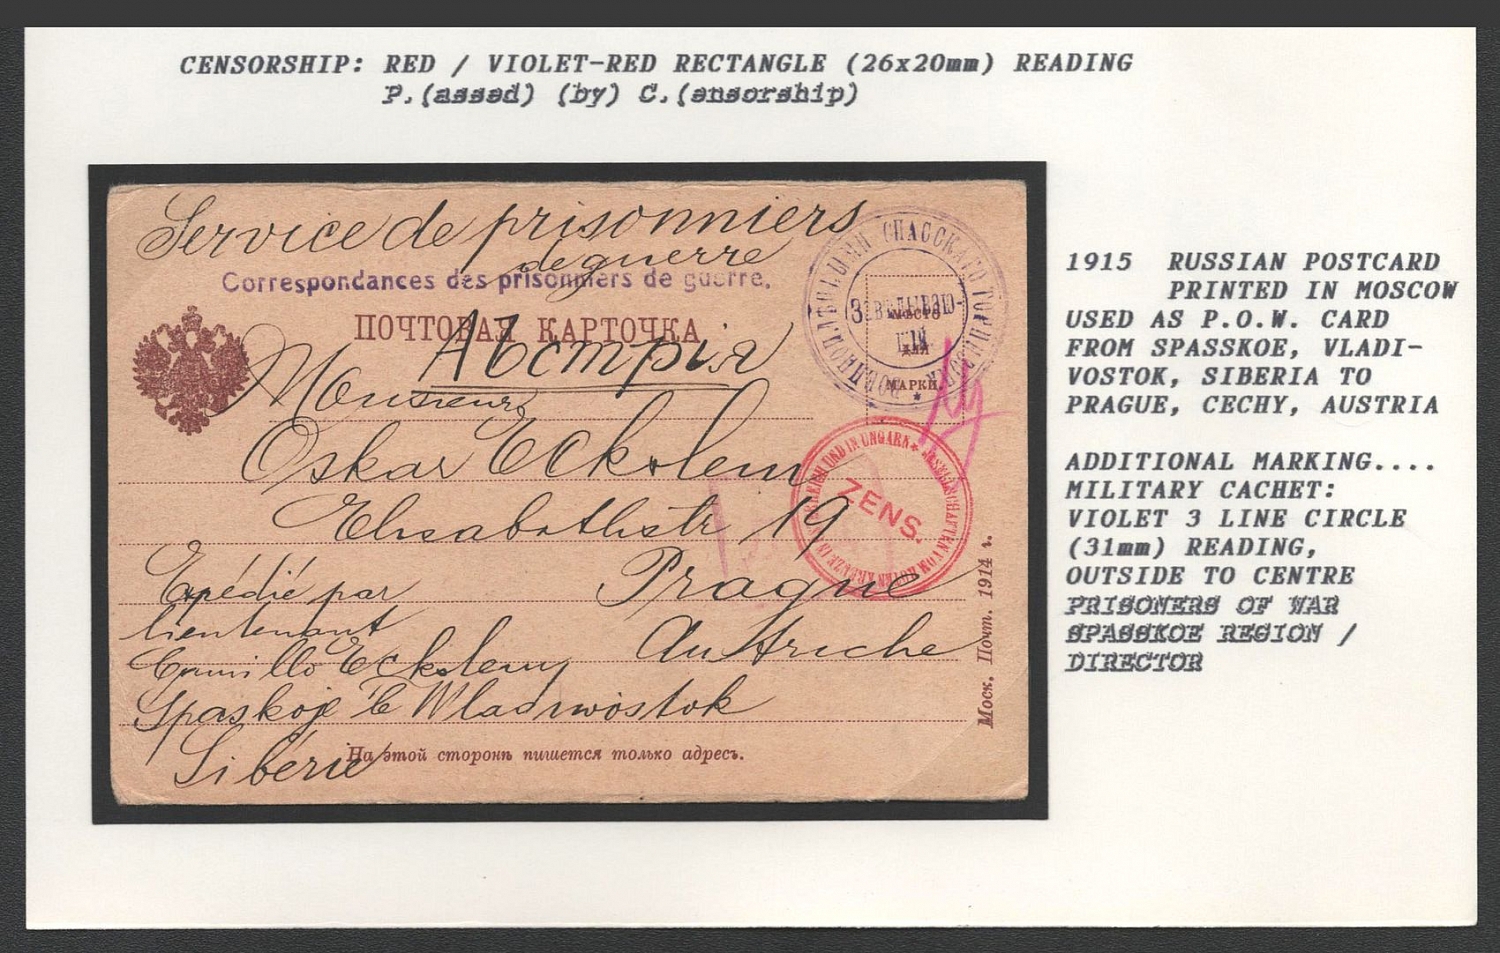 CENSORSHIP: RED / VIOLET-RED RECTANGLE (26x20mm) READING
P.(assed) (by) C.(ensorship)
Service de prisonniers
de guerre
Correspondances des prisonniers de guerre.
ПОЧТОВАЯ КАРТОЧКА
Австрія
Monsieur
Oskar Eckstein
Elisabethstr 19
Prague
Autriche
Expédié par
lieutenant
Camillo Eckstein
Spaskoje
Wladiwostok
Sibérie
На этой сторонѣ пишется только адресъ.
Моск. Почт. 1914 г.
СПАССКАГО
МѢСТО
ДЛЯ
МАРКИ
ZENS.
ROTEN KREUZE IN ÖSTERREICH UND IN UNGARN
1915 RUSSIAN POSTCARD
PRINTED IN MOSCOW
USED AS P.O.W. CARD
FROM SPASSKOE, VLADI-
VOSTOK, SIBERIA TO
PRAGUE, CECHY, AUSTRIA
ADDITIONAL MARKING....
MILITARY CACHET:
VIOLET 3 LINE CIRCLE
(31mm) READING,
OUTSIDE TO CENTRE
PRISONERS OF WAR
SPASSKOE REGION /
DIRECTOR